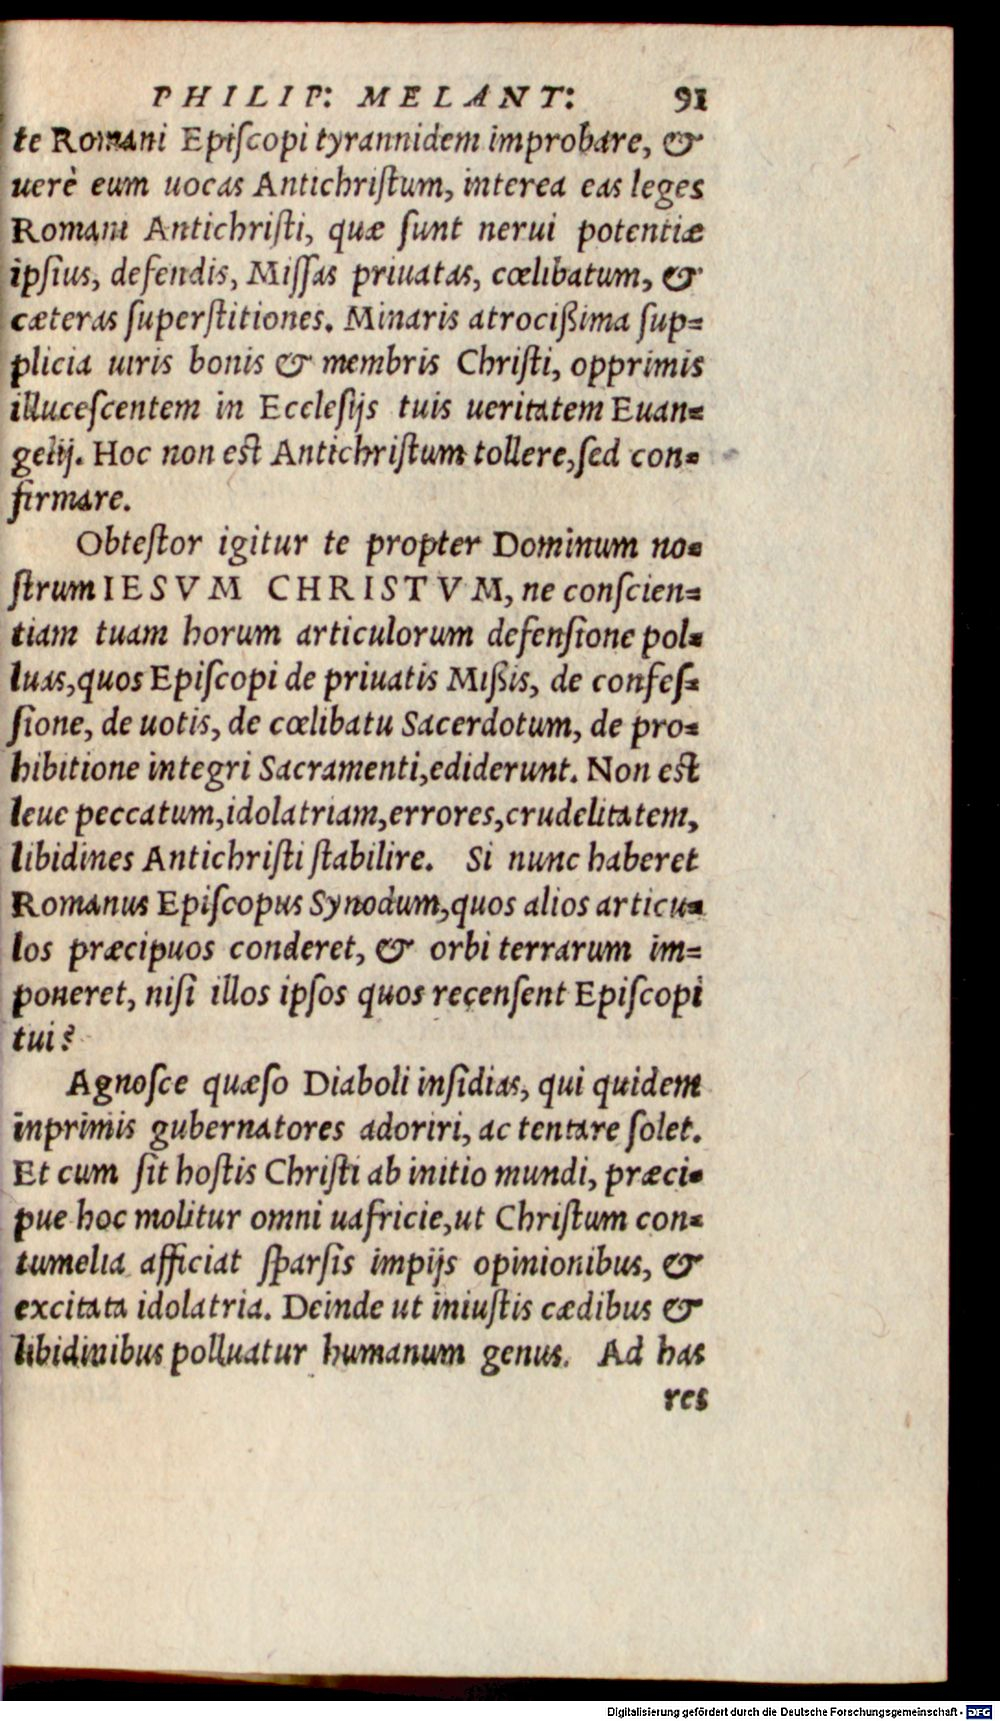 PHILIP: MELANT: 91
te Romani Epiſcopi tyrannidem improbare, &
uerè eum uocas Antichriſtum, interea eas leges
Romani Antichriſti, quæ ſunt nerui potentiæ
ipſius, defendis, Miſſas priuatas, cœlibatum, &
cæteras superſtitiones. Minaris atrocißima ſup=
plicia uiris bonis & membris Chriſti, opprimis
illuceſcentem in Eccleſijs tuis ueritatem Euan=
gelij. Hoc non eſt Antichriſtum tollere, ſed con=
firmare.
Obteſtor igitur te propter Dominum no=
ſtrum IESVM CHRISTVM, ne conſcien=
tiam tuam horum articulorum defenſione pol=
luas, quos Epiſcopi de priuatis Mißis, de confeſ=
ſione, de uotis, de cœlibatu Sacerdotum, de pro=
hibitione integri Sacramenti, ediderunt. Non eſt
leue peccatum, idolatriam, errores, crudelitatem,
libidines Antichriſti ſtabilire. Si nunc haberet
Romanus Epiſcopus Synodum, quos alios articu=
los præcipuos conderet, & orbi terrarum im=
poneret, niſi illos ipſos quos recenſent Epiſcopi
tui?
Agnoſce quæſo Diaboli inſidias, qui quidem
inprimis gubernatores adoriri, ac tentare ſolet.
Et cum ſit hoſtis Chriſti ab initio mundi, præci=
pue hoc molitur omni uafricie, ut Chriſtum con=
tumelia afficiat ſparſis impijs opinionibus, &
excitata idolatria. Deinde ut iniuſtis cædibus &
libidinibus polluatur humanum genus. Ad has
res
Digitalisierung gefördert durch die Deutsche Forschungsgemeinschaft - DFG